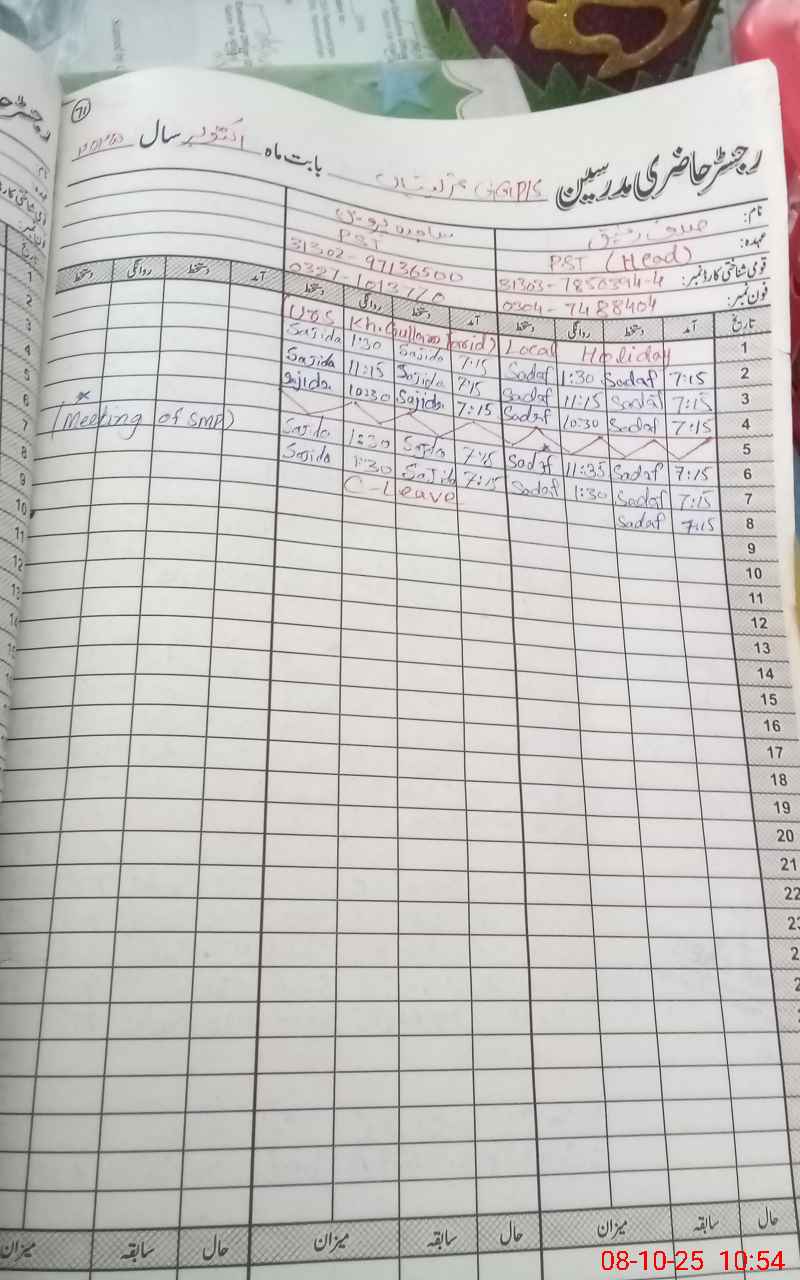 71
رجسٹر حاضری مدرسین GGPS بابت ماہ اکتوبر سال
نام:
عہدہ: PST (Head) PST
قومی شناختی کارڈ نمبر: 31303-7850394-4 31302-97136500
فون نمبر: 0304-7488404 0327-1013770
تاریخ آمد دستخط روانگی دستخط آمد دستخط روانگی دستخط آمد دستخط روانگی دستخط
1 Urs Kh. Ghulam Farid) Local Holiday
2 7:15 Sadaf 1:30 Sadaf 7:15 Sajida 1:30 Sajida
3 7:15 Sadaf 11:15 Sadaf 7:15 Sajida 11:15 Sajida
4 7:15 Sadaf 10:30 Sadaf 7:15 Sajida 10:30 Sajida
5
6 7:15 Sadaf 11:35 Sadaf 7:15 Sajida 1:30 Sajida (Meeting of SMP)
7 7:15 Sadaf 1:30 Sadaf 7:15 Sajida 1:30 Sajida
8 7:15 Sadaf C-Leave
9
10
11
12
13
14
15
16
17
18
19
20
21
22
حال سابقہ میزان حال سابقہ میزان حال سابقہ میزان
08-10-25 10:54